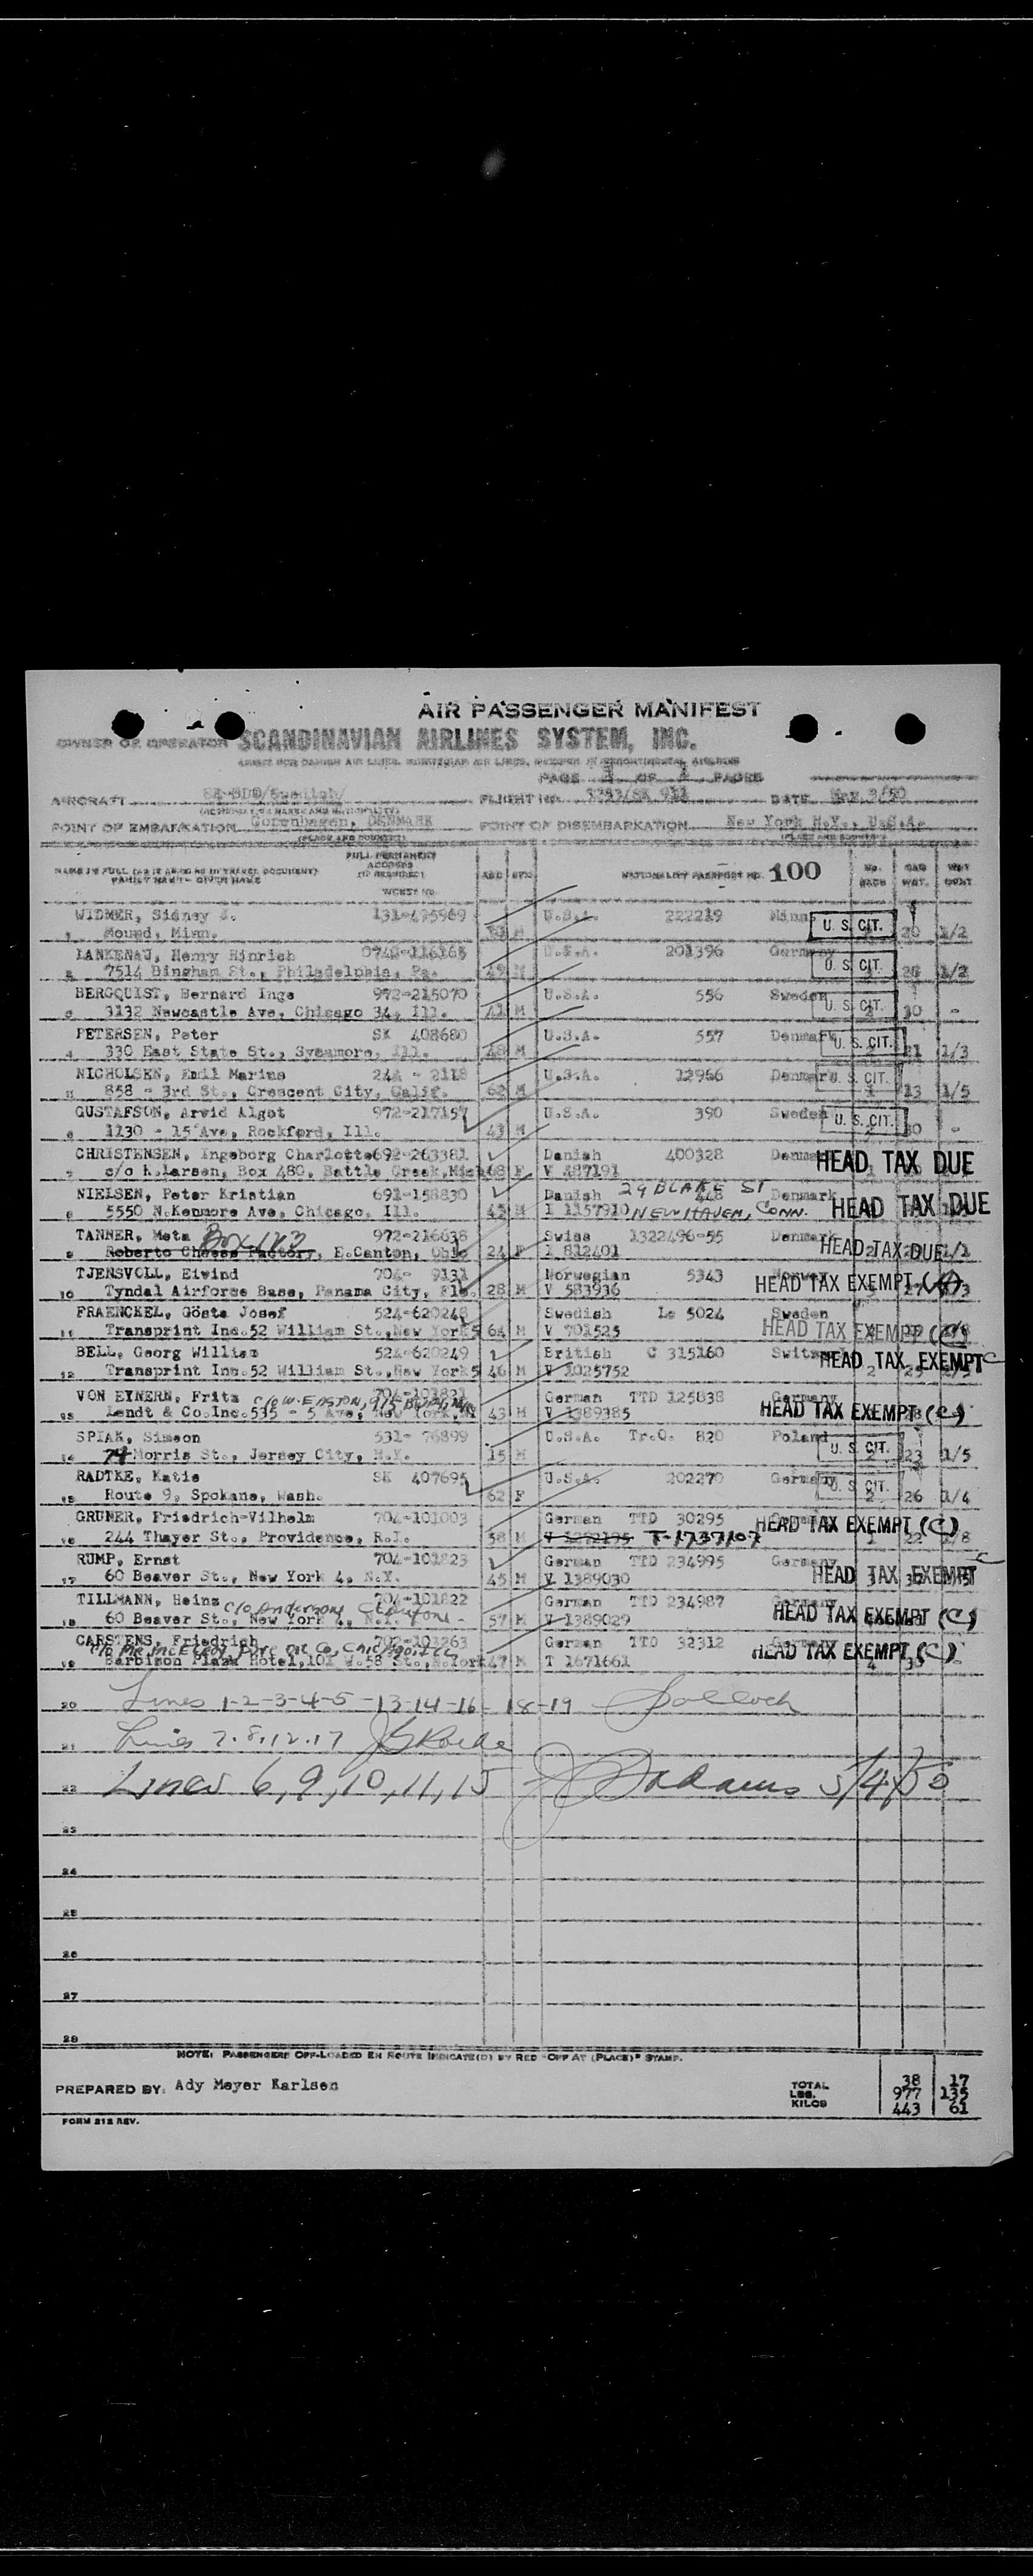 AIR PASSENGER MANIFEST
OWNER OR OPERATOR SCANDINAVIAN AIRLINES SYSTEM, INC.
PAGE 1 OF 1 PAGES
AIRCRAFT SE-BDO/Swedish/ FLIGHT NO. SK 911 DATE May 3/50
POINT OF EMBARKATION Copenhagen, DENMARK POINT OF DISEMBARKATION New York N.Y., U.S.A.
(PLACE AND COUNTRY) (PLACE AND COUNTRY)
FULL PERMANENT
ADDRESS
(IF REQUIRED)
FAMILY NAME - GIVEN NAME AGE SEX NATIONALITY PASSPORT NO. 100 No. BAGS BAG WGT.
TICKET NO.
WIDMER, Sidney J. 131-495969 U.S.A. 222219 Minn. U. S. CIT.
1 Mound, Minn. M 20 1/2
LANKENAU, Henry Hinrich U.S.A. 201396 Germany U. S. CIT.
2 7514 Bingham St., Philadelphia, Pa. 49 M 26 1/2
BERGQUIST, Bernard Inge 972-215070 U.S.A. 556 Sweden U. S. CIT.
3 3132 Newcastle Ave, Chicago 34, Ill. 41 M 30 -
PETERSEN, Peter SK 408680 U.S.A. 557 Denmark U. S. CIT.
4 330 East State St., Sycamore, Ill. 48 M 21 1/3
NICHOLSEN, Emil Marius 244 - 2118 U.S.A. 12966 Denmark U. S. CIT.
5 858 - 3rd St., Crescent City, Calif. 62 M 1 13 1/5
GUSTAFSON, Arvid Algot 972-217157 U.S.A. 390 Sweden U. S. CIT.
6 1130 - 15 Ave, Rockford, Ill. 43 M 30 -
CHRISTENSEN, Ingeborg Charlotte 692-263381 Danish 400328 Denmark HEAD TAX DUE
7 c/o K.Larsen, Box 480, Battle Creek, Mich 68 F V 487191
NIELSEN, Peter Kristian 691-158830 Danish 29 BLAKE ST 448 Denmark HEAD TAX DUE
8 5550 N.Kenmore Ave, Chicago, Ill. 45 M I 1157910 NEW HAVEN, CONN.
TANNER, Meta Box 173 972-216638 Swiss 1322496-55 Denmark HEAD TAX DUE
9 Roberto Cheese Factory, E.Canton, Ohio 24 F I 812401 1/1
TJENSVOLL, Eivind 704- 9131 Norwegian 5343 HEAD TAX EXEMPT (A)
10 Tyndal Airforce Base, Panama City, Fla. 28 M V 583936
FRAENCKEL, Gösta Josef 524-620248 Swedish Le 5024 Sweden HEAD TAX EXEMPT (C)
11 Transprint Inc. 52 William St., New York 5 64 M V 701525
BELL, Georg William 524-620249 British C 315160 HEAD TAX EXEMPT C
12 Transprint Inc. 52 William St., New York 5 46 M V 1025752
VON EYNERN, Fritz 704-101821 German TTD 125838 Germany HEAD TAX EXEMPT (C)
13 Lendt & Co.Inc. 535 - 5 Ave, New York, 43 M V 1389385
SPIAK, Simeon 531- 76899 U.S.A. Tr.Q. 820 Poland U. S. CIT.
14 74 Morris St., Jersey City, N.Y. 15 M 23 1/5
RADTKE, Katie SK 407695 U.S.A. 202270 Germany U. S. CIT.
15 Route 9, Spokane, Wash. 62 F 2 26 1/4
GRUNER, Friedrich-Vilhelm 704-101003 German TTD 30295 HEAD TAX EXEMPT (C)
16 244 Thayer St., Providence, R.I. 38 M T-1737107 1 22 1/8
RUMP, Ernst 704-101823 German TTD 234995 Germany HEAD TAX EXEMPT C
17 60 Beaver St., New York 4, N.Y. 45 M V 1389030
TILLMANN, Heinz c/o Anderson, Clayton 704-101822 German TTD 234987 HEAD TAX EXEMPT (C)
18 60 Beaver St., New York 4, N.Y. 57 M V 1389029
CARSTENS, Friedrich 702-101263 German TTD 32312 HEAD TAX EXEMPT (C)
19 Barbizon Plaza Hotel, 101 W.58 St., N.York 47 M T 1671661 4
20 Lines 1-2-3-4-5-13-14-16-18-19
21 Lines 7.8.12.17
22 Lines 6, 9, 10, 11, 15 Adams 5/4/50
23
24
25
26
27
28
NOTE: PASSENGERS OFF-LOADED EN ROUTE INDICATE(D) BY RED "OFF AT (PLACE)" STAMP.
PREPARED BY: Ady Meyer Karlsen
TOTAL 38 17
LBS. 977 135
KILOS 443 61
FORM 212 REV.